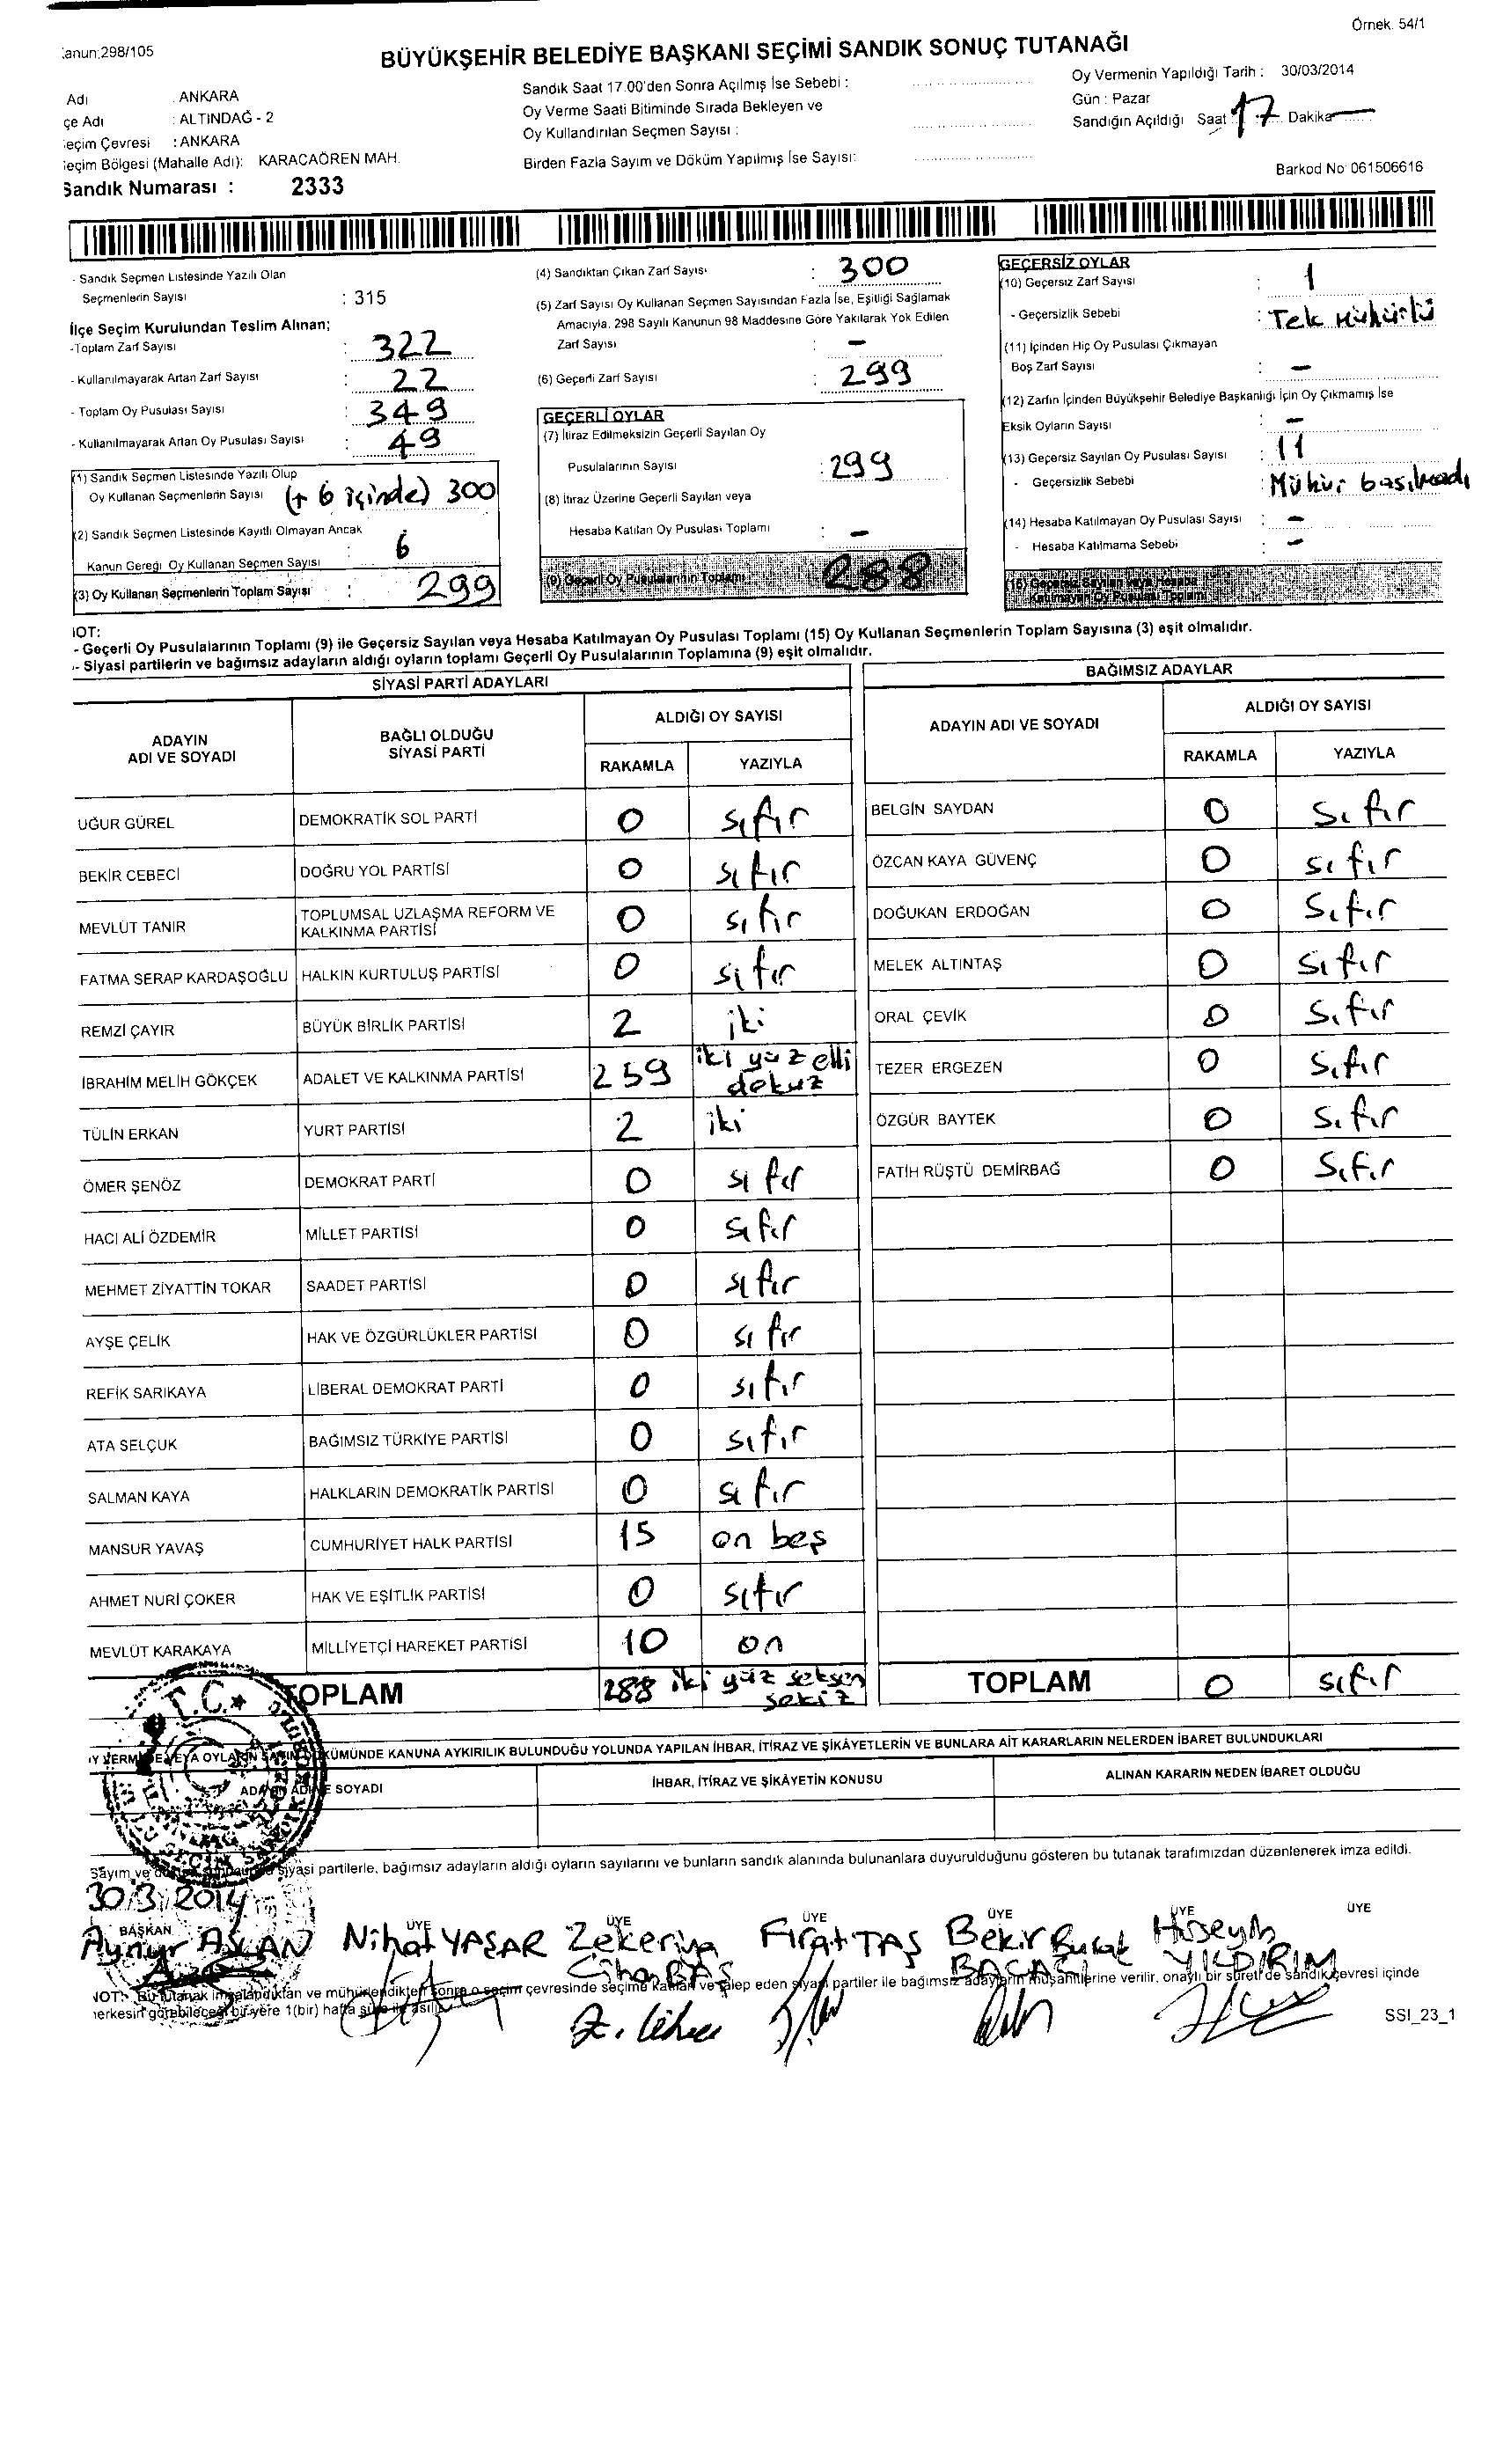 Örnek. 54/1
anun;298/105
BÜYÜKŞEHİR BELEDİYE BAŞKANI SEÇİMİ SANDIK SONUÇ TUTANAĞI
Adı : ANKARA
çe Adı : ALTINDAĞ - 2
eçim Çevresi : ANKARA
Seçim Bölgesi (Mahalle Adı): KARACAÖREN MAH.
Sandık Numarası : 2333
Sandık Saat 17.00'den Sonra Açılmış İse Sebebi :
Oy Verme Saati Bitiminde Sırada Bekleyen ve
Oy Kullandırılan Seçmen Sayısı :
Birden Fazla Sayım ve Döküm Yapılmış İse Sayısı:
Oy Vermenin Yapıldığı Tarih : 30/03/2014
Gün : Pazar
Sandığın Açıldığı Saat 17 Dakika —
Barkod No: 061506616
- Sandık Seçmen Listesinde Yazılı Olan
Seçmenlerin Sayısı : 315
İlçe Seçim Kurulundan Teslim Alınan;
-Toplam Zarf Sayısı : 322
- Kullanılmayarak Artan Zarf Sayısı : 22
- Toplam Oy Pusulası Sayısı : 349
- Kullanılmayarak Artan Oy Pusulası Sayısı : 49
(1) Sandık Seçmen Listesinde Yazılı Olup
Oy Kullanan Seçmenlerin Sayısı (+ 6 içinde) 300
(2) Sandık Seçmen Listesinde Kayıtlı Olmayan Ancak
Kanun Gereği Oy Kullanan Seçmen Sayısı : 6
(3) Oy Kullanan Seçmenlerin Toplam Sayısı : 299
(4) Sandıktan Çıkan Zarf Sayısı : 300
(5) Zarf Sayısı Oy Kullanan Seçmen Sayısından Fazla İse, Eşitliği Sağlamak
Amacıyla, 298 Sayılı Kanunun 98 Maddesine Göre Yakılarak Yok Edilen
Zarf Sayısı : —
(6) Geçerli Zarf Sayısı : 299
GEÇERLİ OYLAR
(7) İtiraz Edilmeksizin Geçerli Sayılan Oy
Pusulalarının Sayısı : 299
(8) İtiraz Üzerine Geçerli Sayılan veya
Hesaba Katılan Oy Pusulası Toplamı : —
(9) Geçerli Oy Pusulalarının Toplamı 288
GEÇERSİZ OYLAR
(10) Geçersiz Zarf Sayısı : 1
- Geçersizlik Sebebi : Tek Mühürlü
(11) İçinden Hiç Oy Pusulası Çıkmayan
Boş Zarf Sayısı : —
(12) Zarfın İçinden Büyükşehir Belediye Başkanlığı İçin Oy Çıkmamış İse
Eksik Oyların Sayısı : —
(13) Geçersiz Sayılan Oy Pusulası Sayısı : 11
- Geçersizlik Sebebi : Mühür basılmadı
(14) Hesaba Katılmayan Oy Pusulası Sayısı : —
- Hesaba Katılmama Sebebi : —
(15) Geçersiz Sayılan veya Hesaba
Katılmayan Oy Pusulası Toplamı
NOT:
- Geçerli Oy Pusulalarının Toplamı (9) ile Geçersiz Sayılan veya Hesaba Katılmayan Oy Pusulası Toplamı (15) Oy Kullanan Seçmenlerin Toplam Sayısına (3) eşit olmalıdır.
- Siyasi partilerin ve bağımsız adayların aldığı oyların toplamı Geçerli Oy Pusulalarının Toplamına (9) eşit olmalıdır.
SİYASİ PARTİ ADAYLARI
ADAYIN ADI VE SOYADI BAĞLI OLDUĞU SİYASİ PARTİ ALDIĞI OY SAYISI
RAKAMLA YAZIYLA
UĞUR GÜREL DEMOKRATİK SOL PARTİ 0 sıfır
BEKİR CEBECİ DOĞRU YOL PARTİSİ 0 sıfır
MEVLÜT TANIR TOPLUMSAL UZLAŞMA REFORM VE KALKINMA PARTİSİ 0 sıfır
FATMA SERAP KARDAŞOĞLU HALKIN KURTULUŞ PARTİSİ 0 sıfır
REMZİ ÇAYIR BÜYÜK BİRLİK PARTİSİ 2 iki
İBRAHİM MELİH GÖKÇEK ADALET VE KALKINMA PARTİSİ 259 iki yüz elli dokuz
TÜLİN ERKAN YURT PARTİSİ 2 iki
ÖMER ŞENÖZ DEMOKRAT PARTİ 0 sıfır
HACI ALİ ÖZDEMİR MİLLET PARTİSİ 0 sıfır
MEHMET ZİYATTİN TOKAR SAADET PARTİSİ 0 sıfır
AYŞE ÇELİK HAK VE ÖZGÜRLÜKLER PARTİSİ 0 sıfır
REFİK SARIKAYA LİBERAL DEMOKRAT PARTİ 0 sıfır
ATA SELÇUK BAĞIMSIZ TÜRKİYE PARTİSİ 0 sıfır
SALMAN KAYA HALKLARIN DEMOKRATİK PARTİSİ 0 sıfır
MANSUR YAVAŞ CUMHURİYET HALK PARTİSİ 15 on beş
AHMET NURİ ÇOKER HAK VE EŞİTLİK PARTİSİ 0 sıfır
MEVLÜT KARAKAYA MİLLİYETÇİ HAREKET PARTİSİ 10 on
TOPLAM 288 iki yüz seksen sekiz
BAĞIMSIZ ADAYLAR
ADAYIN ADI VE SOYADI ALDIĞI OY SAYISI
RAKAMLA YAZIYLA
BELGİN SAYDAN 0 Sıfır
ÖZCAN KAYA GÜVENÇ 0 sıfır
DOĞUKAN ERDOĞAN 0 Sıfır
MELEK ALTINTAŞ 0 Sıfır
ORAL ÇEVİK 0 Sıfır
TEZER ERGEZEN 0 Sıfır
ÖZGÜR BAYTEK 0 Sıfır
FATİH RÜŞTÜ DEMİRBAĞ 0 Sıfır
TOPLAM 0 sıfır
T.C.
OYLARIN SAYIM DÖKÜMÜNDE KANUNA AYKIRILIK BULUNDUĞU YOLUNDA YAPILAN İHBAR, İTİRAZ VE ŞİKÂYETLERİN VE BUNLARA AİT KARARLARIN NELERDEN İBARET BULUNDUKLARI
ADAYIN ADI VE SOYADI İHBAR, İTİRAZ VE ŞİKÂYETİN KONUSU ALINAN KARARIN NEDEN İBARET OLDUĞU
Sayım ve siyasi partilerle, bağımsız adayların aldığı oyların sayılarını ve bunların sandık alanında bulunanlara duyurulduğunu gösteren bu tutanak tarafımızdan düzenlenerek imza edildi.
30/3/2014
BAŞKAN ÜYE ÜYE ÜYE ÜYE ÜYE ÜYE
Aynur ASLAN Nihat YAŞAR Zekeriya Cihan BAŞ Fırat TAŞ Bekir Burak BACAĞ Hüseyin YILDIRIM
NOT: Bu tutanak imzalandıktan ve mühürlendikten sonra o seçim çevresinde seçime katılan ve talep eden siyasi partiler ile bağımsız adayların müşahitlerine verilir, onaylı bir sureti de sandık çevresi içinde
herkesin görebileceği bir yere 1(bir) hafta süre ile asılır.
SSI_23_1